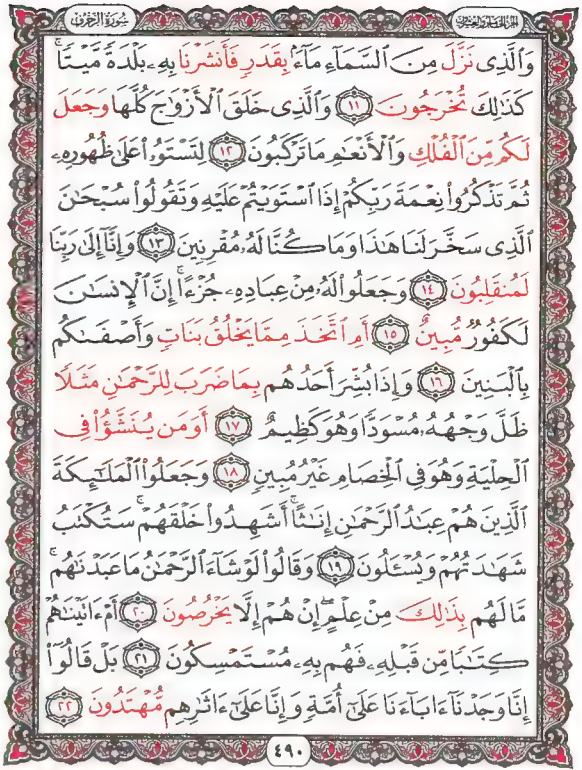 سُورَةُ الزُّخْرُفِ
الجزء الخامس والعشرون
وَٱلَّذِى نَزَّلَ مِنَ ٱلسَّمَآءِ مَآءًۢ بِقَدَرٍ فَأَنشَرْنَا بِهِۦ بَلْدَةً مَّيْتًا ۚ
كَذَٰلِكَ تُخْرَجُونَ ١١ وَٱلَّذِى خَلَقَ ٱلْأَزْوَٰجَ كُلَّهَا وَجَعَلَ
لَكُم مِّنَ ٱلْفُلْكِ وَٱلْأَنْعَٰمِ مَا تَرْكَبُونَ ١٢ لِتَسْتَوُۥا۟ عَلَىٰ ظُهُورِهِۦ
ثُمَّ تَذْكُرُوا۟ نِعْمَةَ رَبِّكُمْ إِذَا ٱسْتَوَيْتُمْ عَلَيْهِ وَتَقُولُوا۟ سُبْحَٰنَ
ٱلَّذِى سَخَّرَ لَنَا هَٰذَا وَمَا كُنَّا لَهُۥ مُقْرِنِينَ ١٣ وَإِنَّآ إِلَىٰ رَبِّنَا
لَمُنقَلِبُونَ ١٤ وَجَعَلُوا۟ لَهُۥ مِنْ عِبَادِهِۦ جُزْءًا ۚ إِنَّ ٱلْإِنسَٰنَ
لَكَفُورٌ مُّبِينٌ ١٥ أَمِ ٱتَّخَذَ مِمَّا يَخْلُقُ بَنَاتٍ وَأَصْفَىٰكُم
بِٱلْبَنِينَ ١٦ وَإِذَا بُشِّرَ أَحَدُهُم بِمَا ضَرَبَ لِلرَّحْمَٰنِ مَثَلًا
ظَلَّ وَجْهُهُۥ مُسْوَدًّا وَهُوَ كَظِيمٌ ١٧ أَوَمَن يُنَشَّؤُا۟ فِى
ٱلْحِلْيَةِ وَهُوَ فِى ٱلْخِصَامِ غَيْرُ مُبِينٍ ١٨ وَجَعَلُوا۟ ٱلْمَلَٰٓئِكَةَ
ٱلَّذِينَ هُمْ عِبَٰدُ ٱلرَّحْمَٰنِ إِنَٰثًا ۚ أَشَهِدُوا۟ خَلْقَهُمْ ۚ سَتُكْتَبُ
شَهَٰدَتُهُمْ وَيُسْـَٔلُونَ ١٩ وَقَالُوا۟ لَوْ شَآءَ ٱلرَّحْمَٰنُ مَا عَبَدْنَٰهُم ۗ
مَّا لَهُم بِذَٰلِكَ مِنْ عِلْمٍ ۖ إِنْ هُمْ إِلَّا يَخْرُصُونَ ٢٠ أَمْ ءَاتَيْنَٰهُمْ
كِتَٰبًا مِّن قَبْلِهِۦ فَهُم بِهِۦ مُسْتَمْسِكُونَ ٢١ بَلْ قَالُوٓا۟
إِنَّا وَجَدْنَآ ءَابَآءَنَا عَلَىٰٓ أُمَّةٍ وَإِنَّا عَلَىٰٓ ءَاثَٰرِهِم مُّهْتَدُونَ ٢٢
٤٩٠